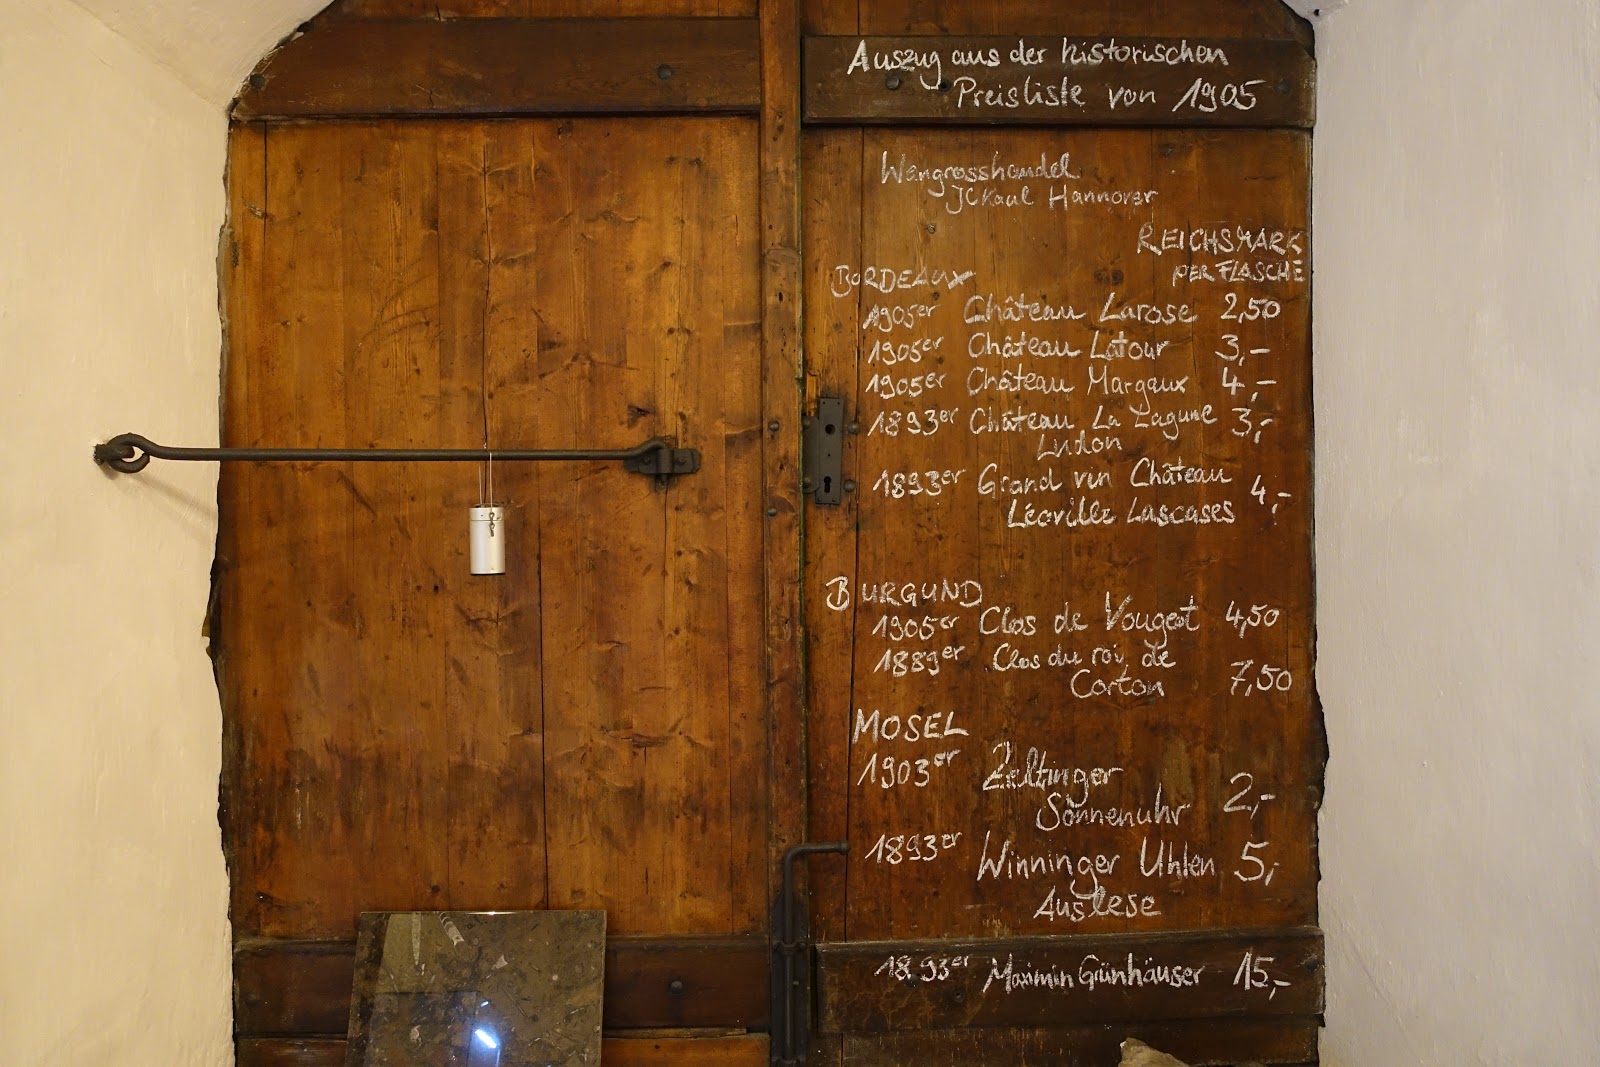 Auszug aus der historischen
Preisliste von 1905
Weingrosshandel
JCKaul Hannover
REICHSMARK
PER FLASCHE
BORDEAUX
1905er Château Larose 2,50
1905er Château Latour 3,-
1905er Château Margaux 4,-
1893er Château La Lagune 3,-
Ludon
1893er Grand vin Château
Léoville Lascases 4,-
BURGUND
1905er Clos de Vougeot 4,50
1889er Clos du roi de
Corton 7,50
MOSEL
1903er Zeltinger
Sonnenuhr 2,-
1893er Winninger Uhlen 5,-
Auslese
1893er Maximin Grünhäuser 15,-